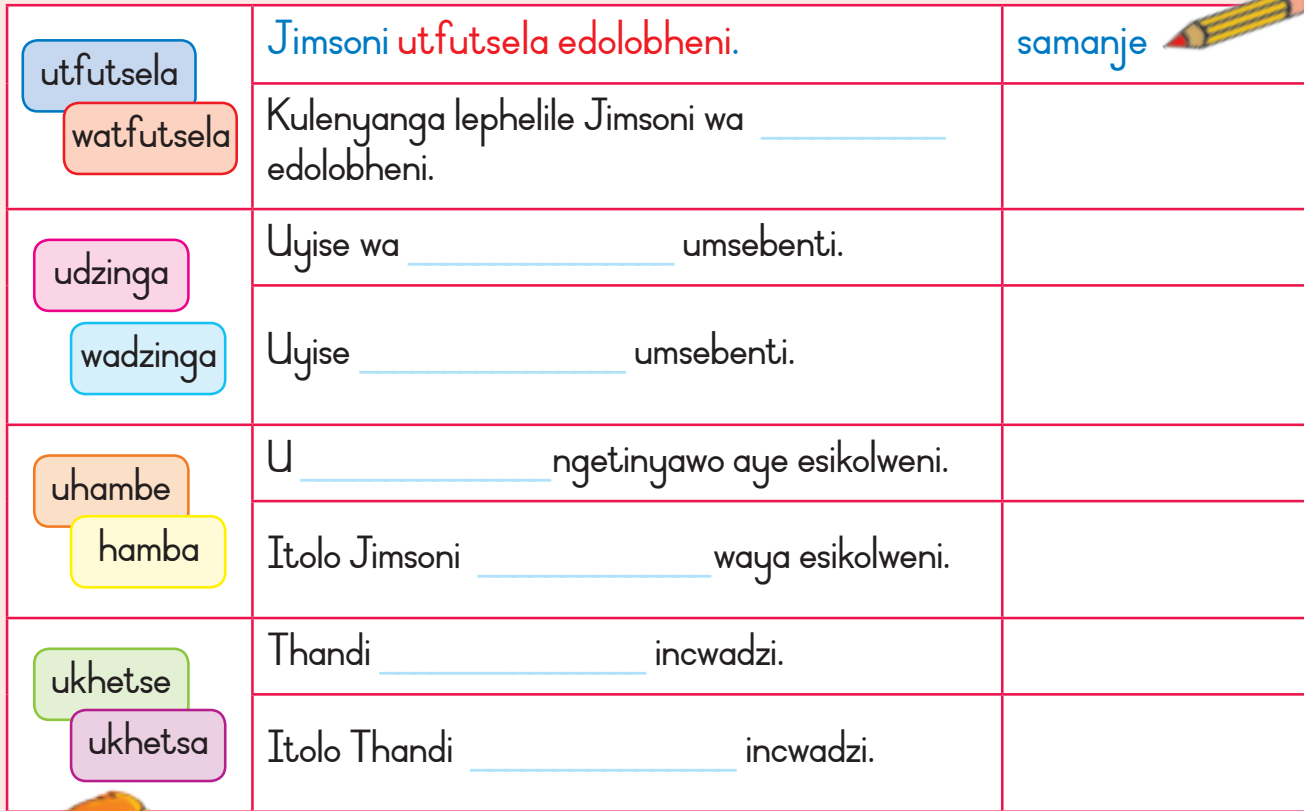 utfutsela
watfutsela
Jimsoni utfutsela edolobheni.
samanje
Kulenyanga lephelile Jimsoni wa ____________
edolobheni.
udzinga
wadzinga
Uyise wa ____________ umsebenti.
Uyise ____________ umsebenti.
uhambe
hamba
U ____________ ngetinyawo aye esikolweni.
Itolo Jimsoni ____________ waya esikolweni.
ukhetse
ukhetsa
Thandi ____________ incwadzi.
Itolo Thandi ____________ incwadzi.